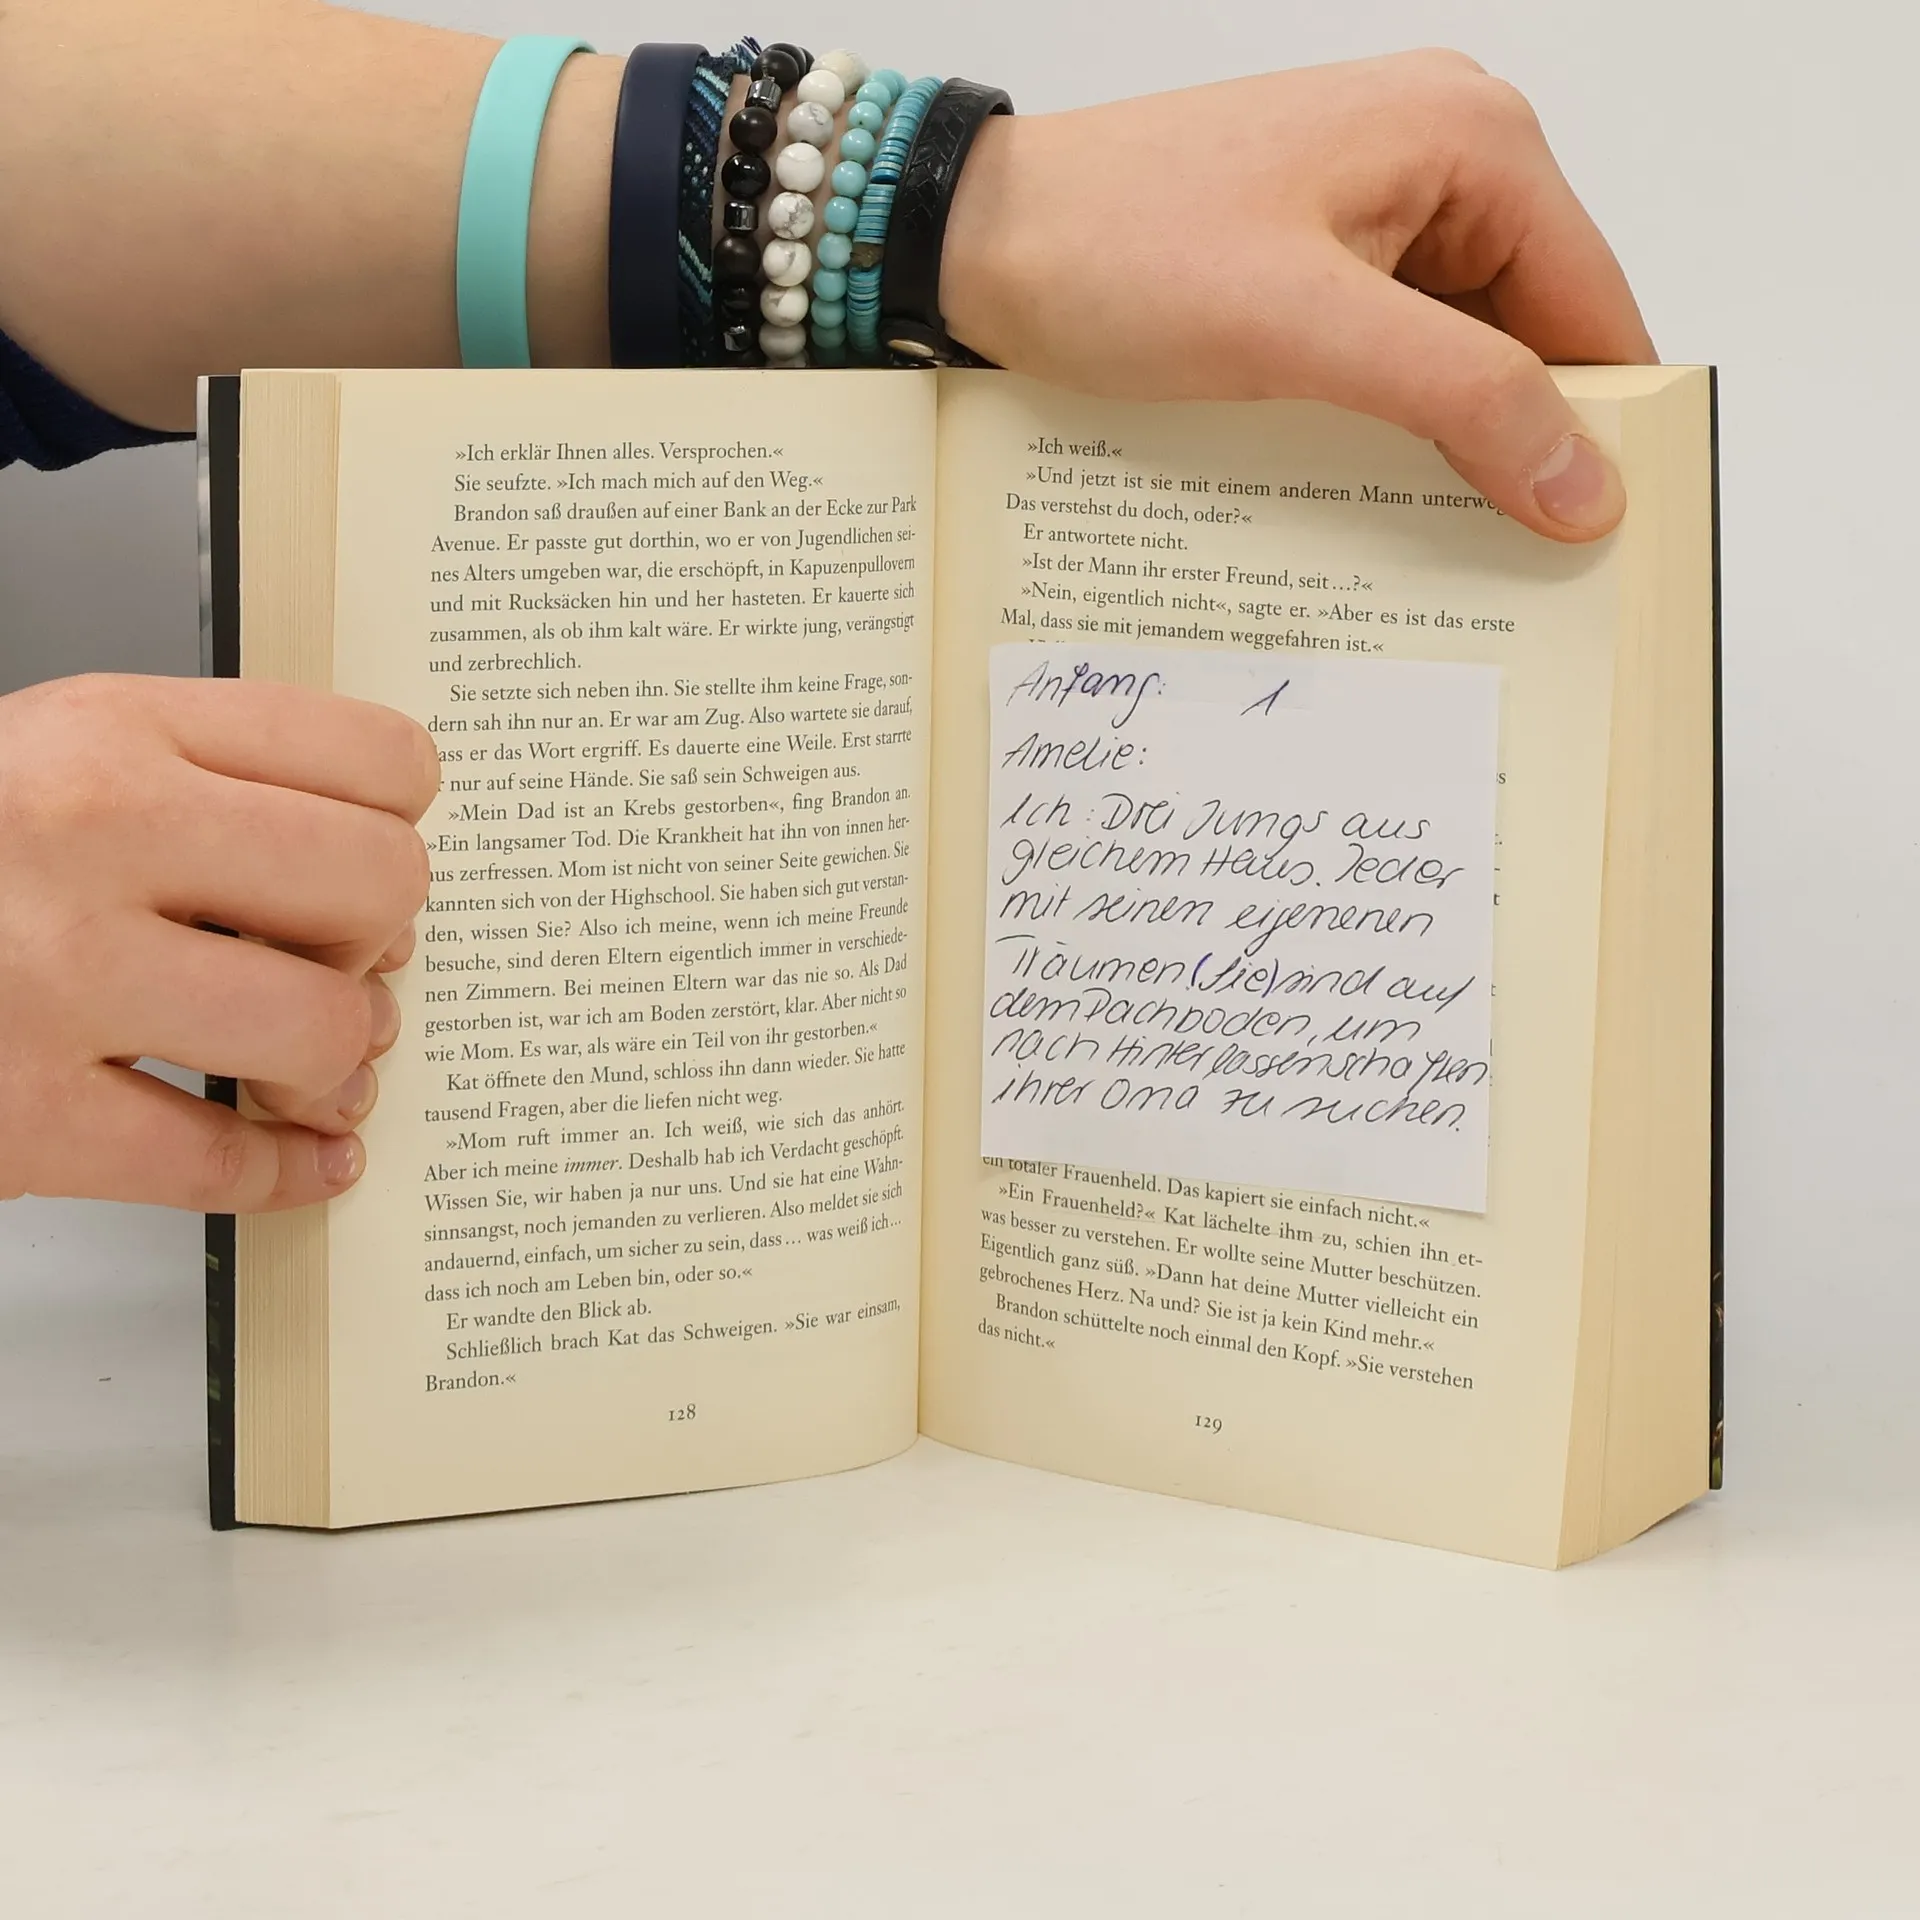 »Ich erklär Ihnen alles. Versprochen.«
Sie seufzte. »Ich mach mich auf den Weg.«
Brandon saß draußen auf einer Bank an der Ecke zur Park
Avenue. Er passte gut dorthin, wo er von Jugendlichen sei-
nes Alters umgeben war, die erschöpft, in Kapuzenpullovern
und mit Rucksäcken hin und her hasteten. Er kauerte sich
zusammen, als ob ihm kalt wäre. Er wirkte jung, verängstigt
und zerbrechlich.
Sie setzte sich neben ihn. Sie stellte ihm keine Frage, son-
dern sah ihn nur an. Er war am Zug. Also wartete sie darauf,
ass er das Wort ergriff. Es dauerte eine Weile. Erst starrte
r nur auf seine Hände. Sie saß sein Schweigen aus.
»Mein Dad ist an Krebs gestorben«, fing Brandon an.
»Ein langsamer Tod. Die Krankheit hat ihn von innen her-
us zerfressen. Mom ist nicht von seiner Seite gewichen. Sie
kannten sich von der Highschool. Sie haben sich gut verstan-
den, wissen Sie? Also ich meine, wenn ich meine Freunde
besuche, sind deren Eltern eigentlich immer in verschiede-
nen Zimmern. Bei meinen Eltern war das nie so. Als Dad
gestorben ist, war ich am Boden zerstört, klar. Aber nicht so
wie Mom. Es war, als wäre ein Teil von ihr gestorben.«
Kat öffnete den Mund, schloss ihn dann wieder. Sie hatte
tausend Fragen, aber die liefen nicht weg.
»Mom ruft immer an. Ich weiß, wie sich das anhört.
Aber ich meine immer. Deshalb hab ich Verdacht geschöpft.
Wissen Sie, wir haben ja nur uns. Und sie hat eine Wahn-
sinnsangst, noch jemanden zu verlieren. Also meldet sie sich
andauernd, einfach, um sicher zu sein, dass … was weiß ich …
dass ich noch am Leben bin, oder so.«
Er wandte den Blick ab.
Schließlich brach Kat das Schweigen. »Sie war einsam,
Brandon.«
128
»Ich weiß.«
»Und jetzt ist sie mit einem anderen Mann unterweg
Das verstehst du doch, oder?«
Er antwortete nicht.
»Ist der Mann ihr erster Freund, seit …?«
»Nein, eigentlich nicht«, sagte er. »Aber es ist das erste
Mal, dass sie mit jemandem weggefahren ist.«
Anfang: 1
Amelie:
Ich: Drei Jungs aus
gleichem Haus. Jeder
mit seinen eigenenen
Träumen (Sie) sind auf
dem Dachboden, um
nach Hinterlassenschaften
ihrer Oma zu suchen.
ein totaler Frauenheld. Das kapiert sie einfach nicht.«
»Ein Frauenheld?« Kat lächelte ihm zu, schien ihn et-
was besser zu verstehen. Er wollte seine Mutter beschützen.
Eigentlich ganz süß. »Dann hat deine Mutter vielleicht ein
gebrochenes Herz. Na und? Sie ist ja kein Kind mehr.«
Brandon schüttelte noch einmal den Kopf. »Sie verstehen
das nicht.«
129